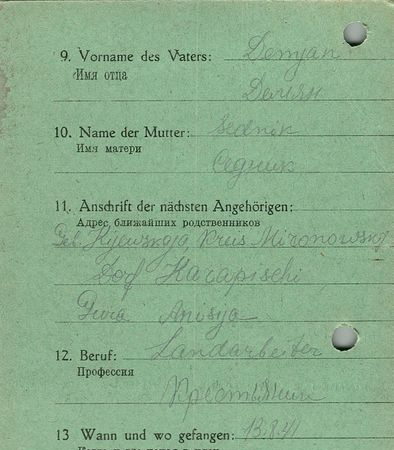 9. Vorname des Vaters: Demjan
Имя отца
Демян
10. Name der Mutter: Sednik
Имя матери
Седник
11. Anschrift der nächsten Angehörigen:
Адрес ближайших родственников
Geb. Kyewskaja, Kreis Mironowsky
Dorf Karapischi
Anisya
12. Beruf: Landarbeiter
Профессия
Крестьянин
13 Wann und wo gefangen: 13.8.41